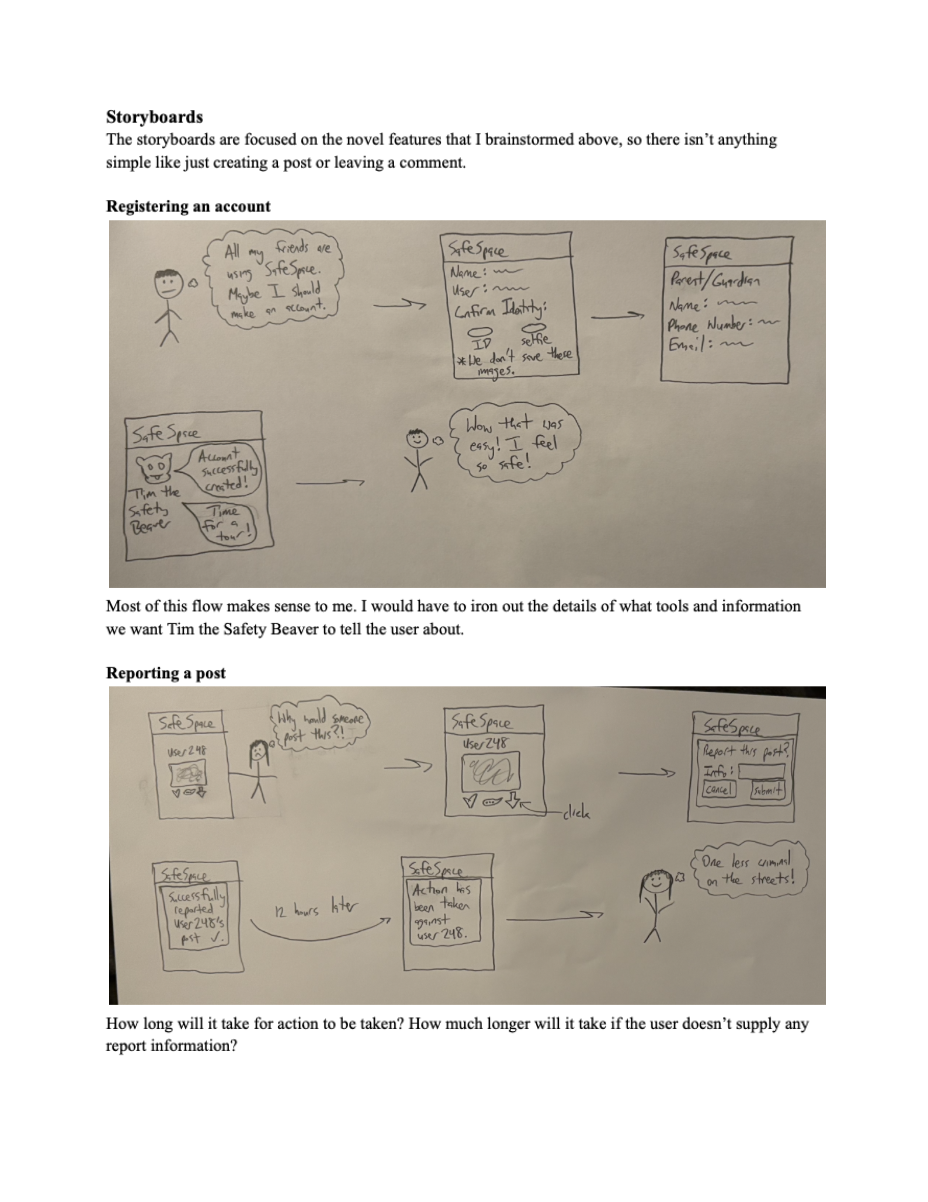 Storyboards
The storyboards are focused on the novel features that I brainstormed above, so there isn't anything
simple like just creating a post or leaving a comment.
Registering an account
All my friends are
using SafeSpace.
Maybe I should
make an account.
SafeSpace
Name:
User:
Confirm Identity:
ID selfie
*We don't save these
images.
SafeSpace
Parent/Guardian
Name:
Phone Number:
Email:
SafeSpace
Account
successfully
created!
Tim the
Safety
Beaver
Time
for a
tour!
Wow that was
easy! I feel
so safe!
Most of this flow makes sense to me. I would have to iron out the details of what tools and information
we want Tim the Safety Beaver to tell the user about.
Reporting a post
SafeSpace
User248
Why would someone
post this?!
SafeSpace
User248
click
SafeSpace
Report this post?
Info:
Cancel Submit
SafeSpace
Successfully
reported
User248's
post ✓.
12 hours later
SafeSpace
Action has
been taken
against
user 248.
One less criminal
on the streets!
How long will it take for action to be taken? How much longer will it take if the user doesn't supply any
report information?